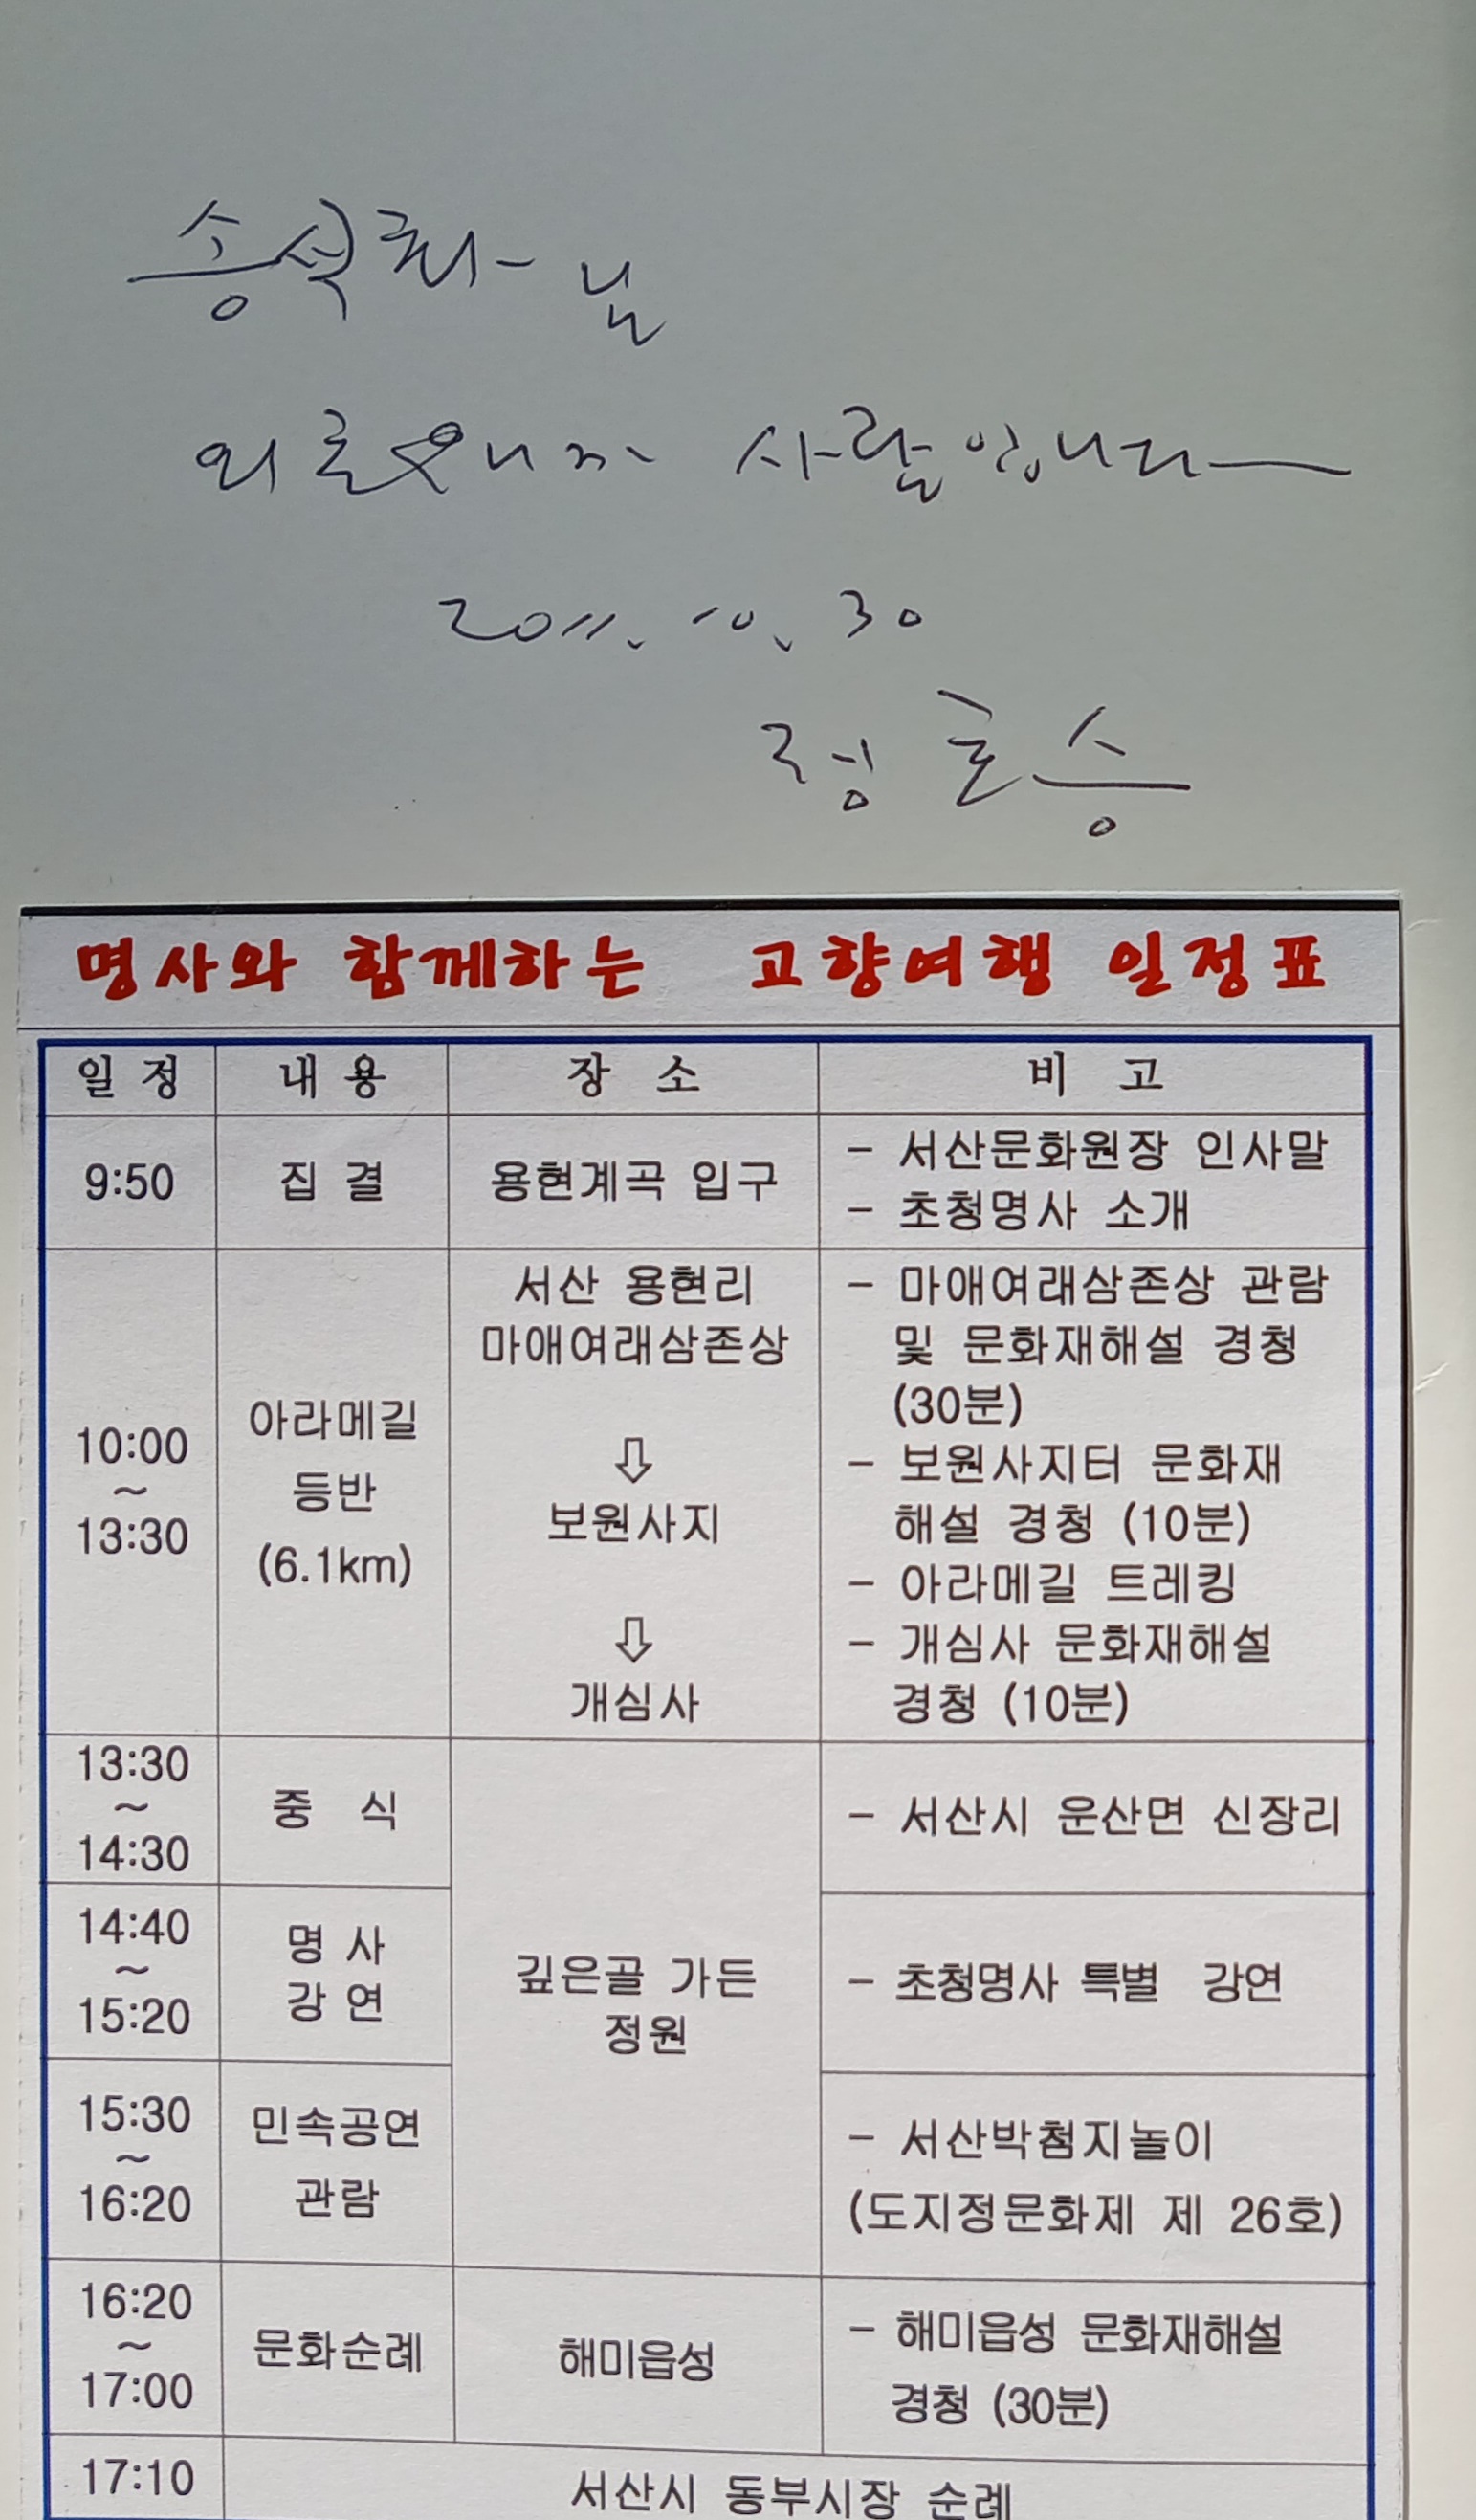 송석 님
외로우니까 사람입니다
2011. 10. 30
정호승
명사와 함께하는 고향여행 일정표
일 정 내 용 장 소 비 고
9:50 집 결 용현계곡 입구 - 서산문화원장 인사말
- 초청명사 소개
10:00
~
13:30
아라메길
등반
(6.1km)
서산 용현리
마애여래삼존상
⇩
보원사지
⇩
개심사
- 마애여래삼존상 관람
및 문화재해설 경청
(30분)
- 보원사지터 문화재
해설 경청 (10분)
- 아라메길 트레킹
- 개심사 문화재해설
경청 (10분)
13:30
~
14:30
중 식
깊은골 가든
정원
- 서산시 운산면 신장리
14:40
~
15:20
명 사
강 연
- 초청명사 특별 강연
15:30
~
16:20
민속공연
관람
- 서산박첨지놀이
(도지정문화제 제 26호)
16:20
~
17:00
문화순례
해미읍성
- 해미읍성 문화재해설
경청 (30분)
17:10 서산시 동부시장 순례